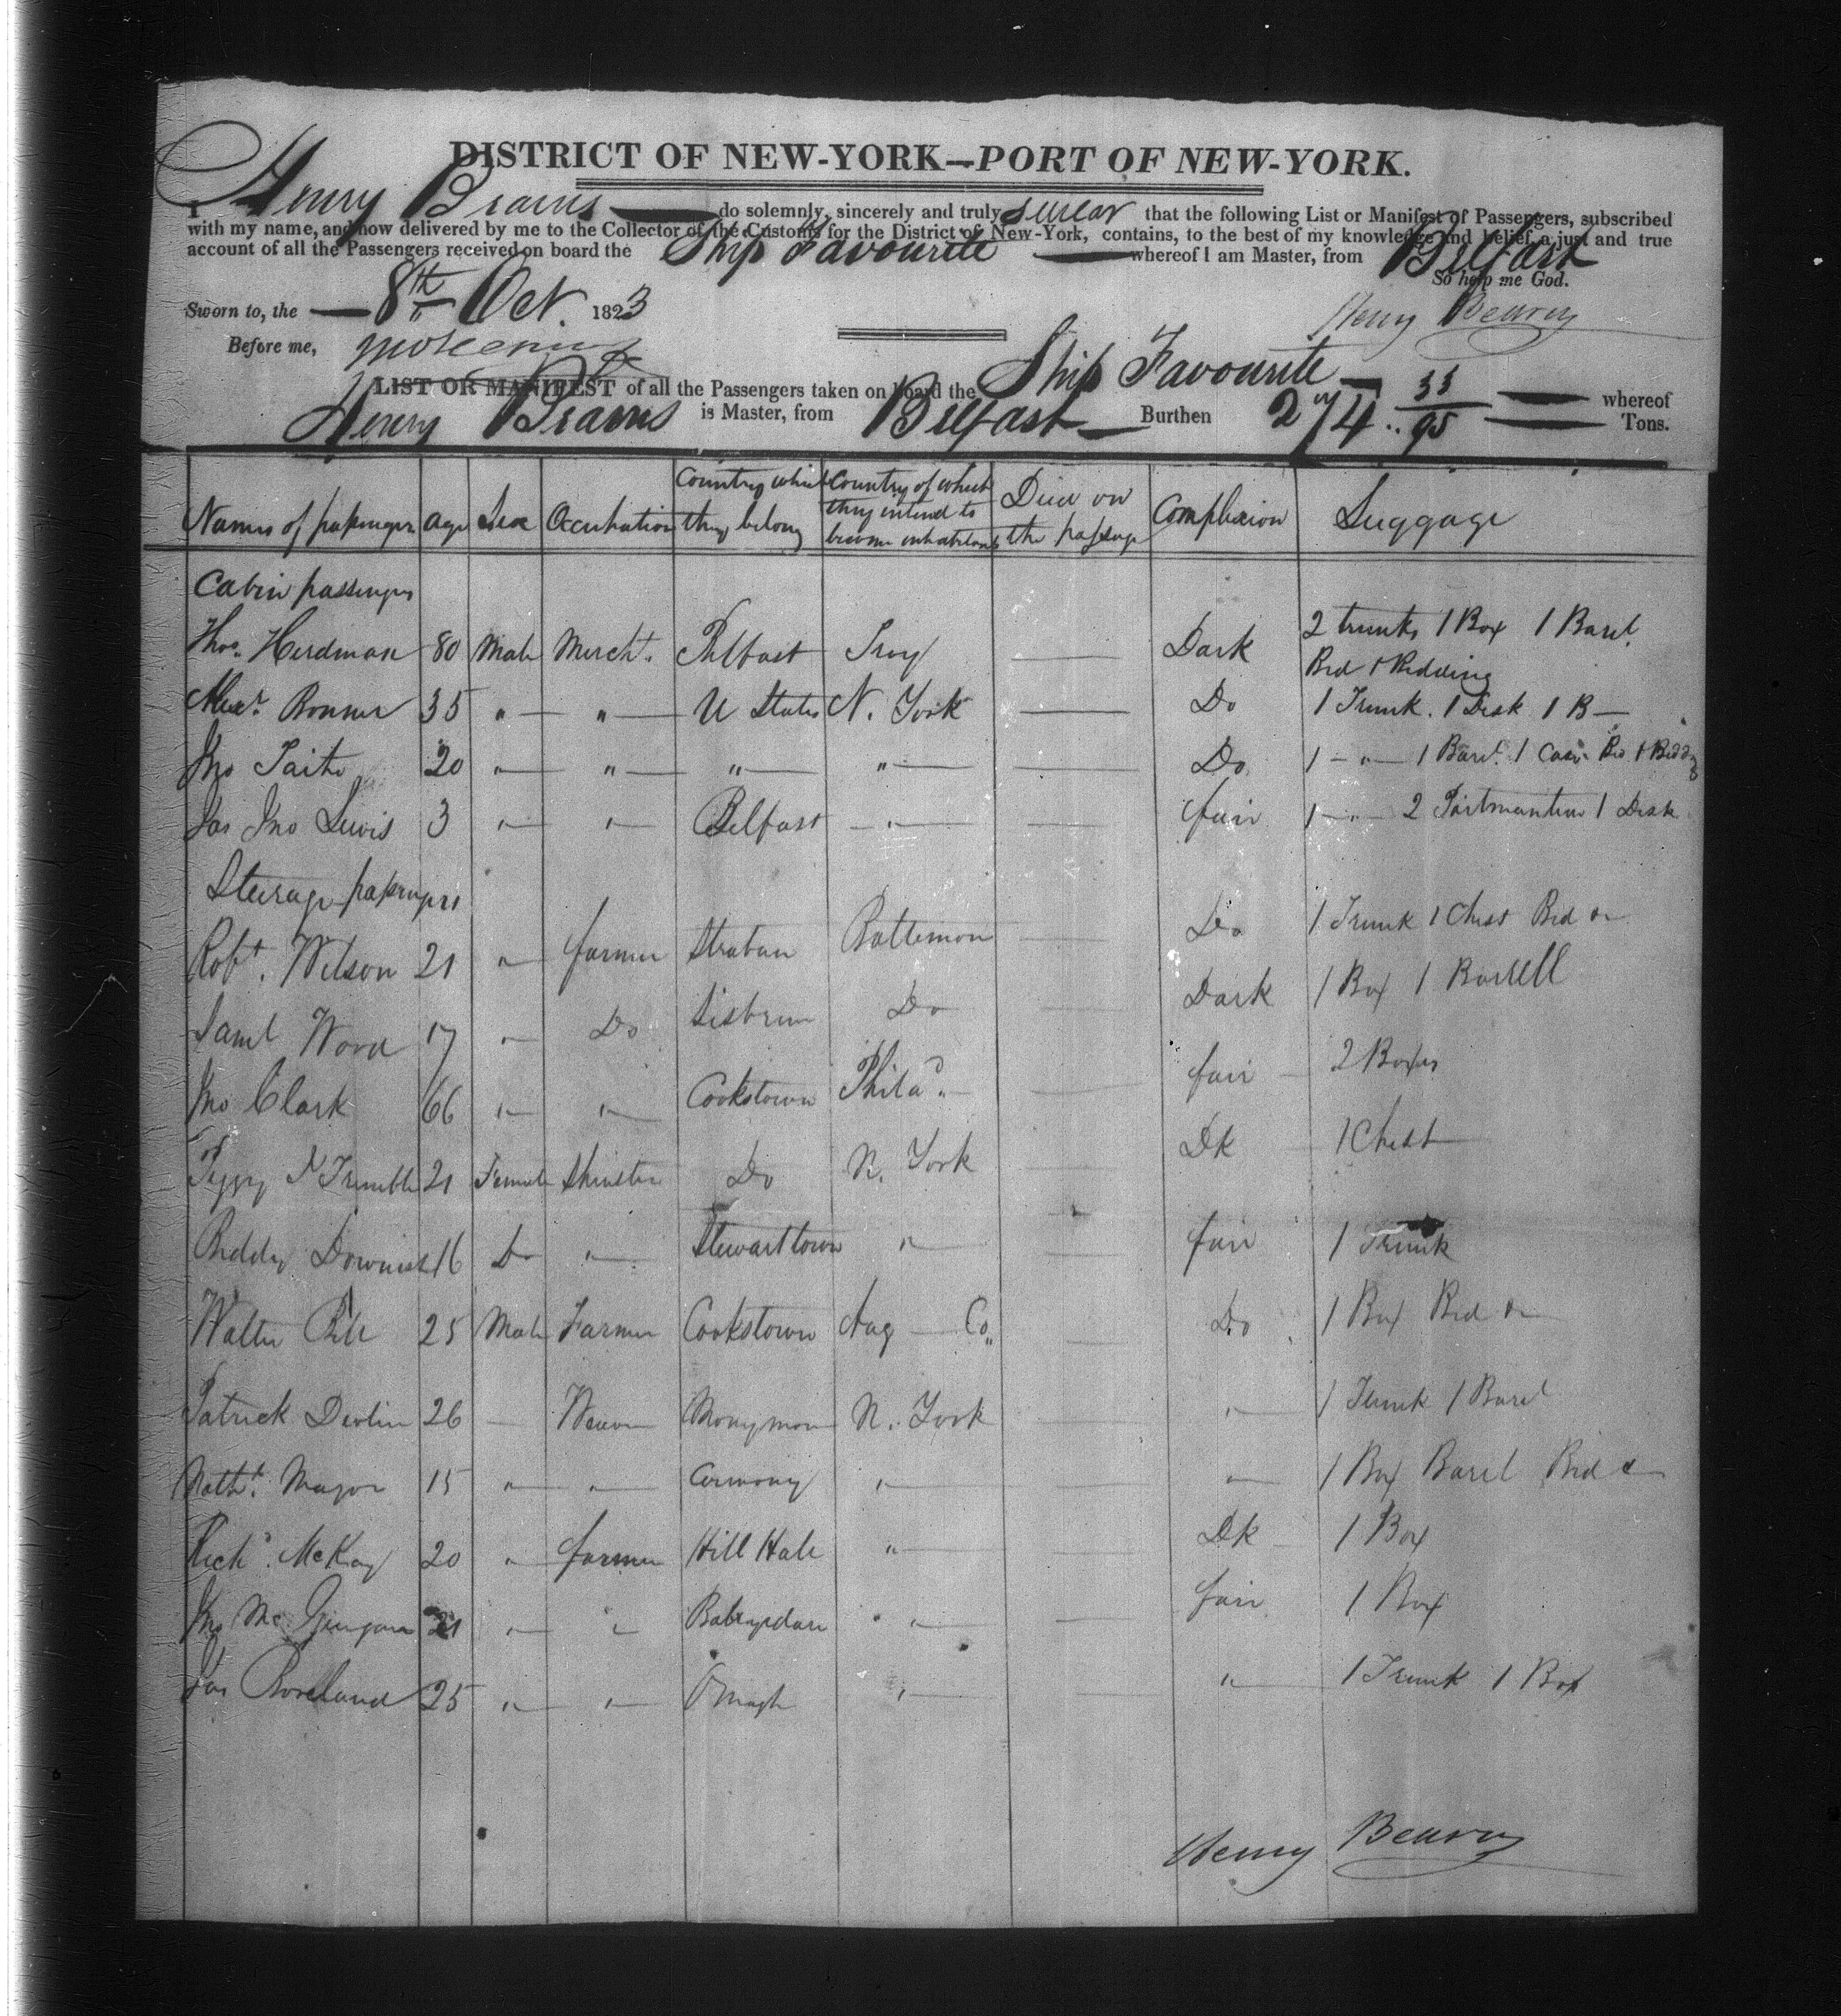 DISTRICT OF NEW-YORK—PORT OF NEW-YORK.
I Henry Beams do solemnly, sincerely and truly swear that the following List or Manifest of Passengers, subscribed
with my name, and now delivered by me to the Collector of the Customs for the District of New-York, contains, to the best of my knowledge and belief, a just and true
account of all the Passengers received on board the Ship Favourite whereof I am Master, from Belfast
So help me God.
Sworn to, the 8th Oct. 1823
Henry
Before me,
LIST OR MANIFEST of all the Passengers taken on board the Ship Favourite whereof
Henry Beams is Master, from Belfast Burthen 274 33/95 Tons.
Names of passengers age Sex Occupation Country which they belong Country of which they intend to become inhabitants Died on the passage Complexion Luggage
Cabin passengers
Thos. Herdman 80 Male Mercht. Belfast Troy — Dark 2 trunks 1 Box 1 Barel. Bed & Bedding
Alexr. Bonner 35 " " U States N. York — Do 1 Trunk. 1 Desk 1 B—
Jno 20 " " " " — Do 1 " 1 Barel. 1 Case Bed & Bedding
Jas Jno Lewis 3 " " Belfast " — fair 1 " 2 Portmanteau 1 Desk
Steerage passengers
Robt. Wilson 21 " farmer Straban Baltimore — Do 1 Trunk 1 Chest Bed &
Saml Wood 17 " Do Lisburn Do — Dark 1 Box 1 Barrell
Jno Clark 66 " " Cookstown Philad. — fair 2 Boxes
Peggy Trimble 21 Female Cookstown Do N. York — Dk 1 Chest
Biddy 16 Do " Stewartstown " — fair 1 Trunk
Walter 25 Male Farmer Cookstown Aug — Co. — Do 1 Box Bed &
Patrick Devlin 26 — Weaver Monymore N. York — " 1 Trunk 1 Barel
Nathl. Major 15 " " " — " 1 Box Barel Bed &
Richd. McKay 20 " farmer Hill Hall " — Dk 1 Box
Jno Mc 21 " " " — fair 1 Box
Jas 25 " " Omagh " — " 1 Trunk 1 Box
Henry